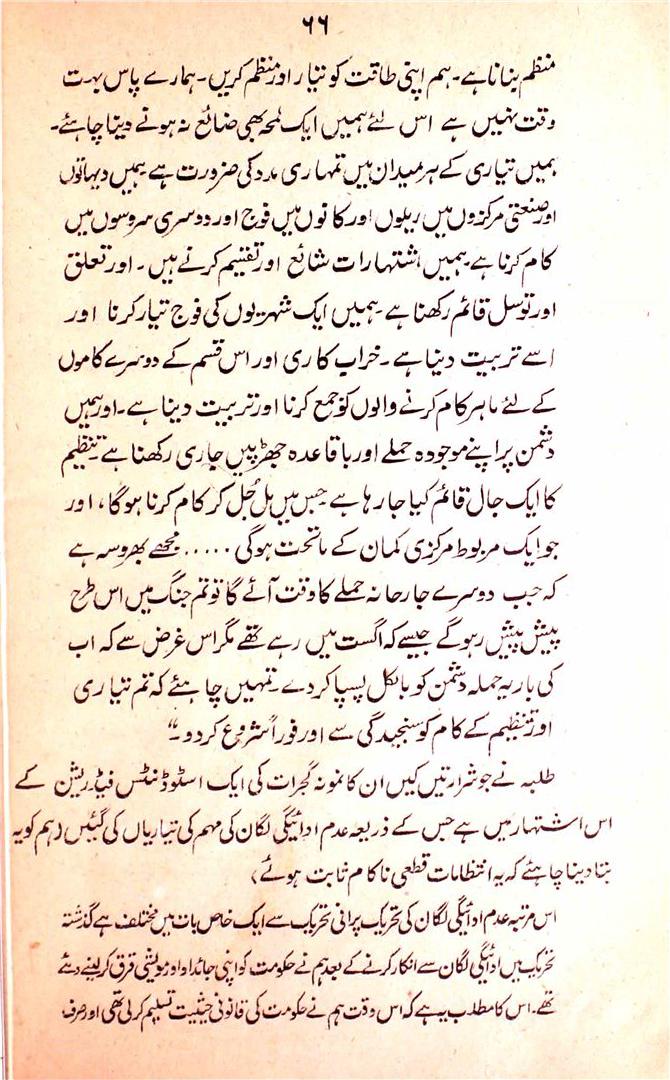 ۶۶
منظم بنانا ہے۔ ہم اپنی طاقت کو تیار اور منظم کریں۔ ہمارے پاس بہت
وقت نہیں ہے اس لئے ہمیں ایک لمحہ بھی ضائع نہ ہونے دینا چاہئے۔
ہمیں تیاری کے ہر میدان میں تمہاری مدد کی ضرورت ہے ہمیں دیہاتوں
اور صنعتی مرکزوں میں ریلوں اور کانوں میں فوج اور دوسری سروسوں میں
کام کرنا ہے ہمیں اشتہارات شائع اور تقسیم کرنے ہیں۔ اور تعلق
اور توسل قائم رکھنا ہے ہمیں ایک شہریوں کی فوج تیار کرنا اور
اسے تربیت دینا ہے۔ خراب کاری اور اس قسم کے دوسرے کاموں
کے لئے ماہر کام کرنے والوں کو جمع کرنا اور تربیت دینا ہے۔ اور ہمیں
دشمن پر اپنے موجودہ حملے اور باقاعدہ جھڑپیں جاری رکھنا ہے تنظیم
کا ایک جال قائم کیا جا رہا ہے جس میں مل جُل کر کام کرنا ہوگا، اور
جو ایک مربوط مرکزی کمان کے ماتحت ہوگی ..... مجھے بھروسہ ہے
کہ جب دوسرے جارحانہ حملے کا وقت آئے گا تو تم جنگ میں اس طرح
پیش پیش رہو گے جیسے کہ اگست میں رہے تھے مگر اس غرض سے کہ اب
کی بار یہ حملہ دشمن کو بالکل پسپا کر دے تمہیں چاہئے کہ تم تیاری
اور تنظیم کے کام کو سنجیدگی سے اور فوراً شروع کر دو۔“
طلبہ نے جو شرارتیں کیں ان کا نمونہ گجرات کی ایک اسٹوڈنٹس فیڈریشن کے
اس اشتہار میں ہے جس کے ذریعہ عدم ادائیگی لگان کی مہم کی تیاریاں کی گئیں (ہم کو یہ
بتا دینا چاہئے کہ یہ انتظامات قطعی ناکام ثابت ہوئے)
اس مرتبہ عدم ادائیگی لگان کی تحریک پرانی تحریک سے ایک خاص بات میں مختلف ہے گذشتہ
تحریک میں ادائیگی لگان سے انکار کرنے کے بعد ہم نے حکومت کو اپنی جائداد اور مویشی قرق کر لینے دئے
تھے۔ اس کا مطلب یہ ہے کہ اس وقت ہم نے حکومت کی قانونی حیثیت تسلیم کر لی تھی اور صرف